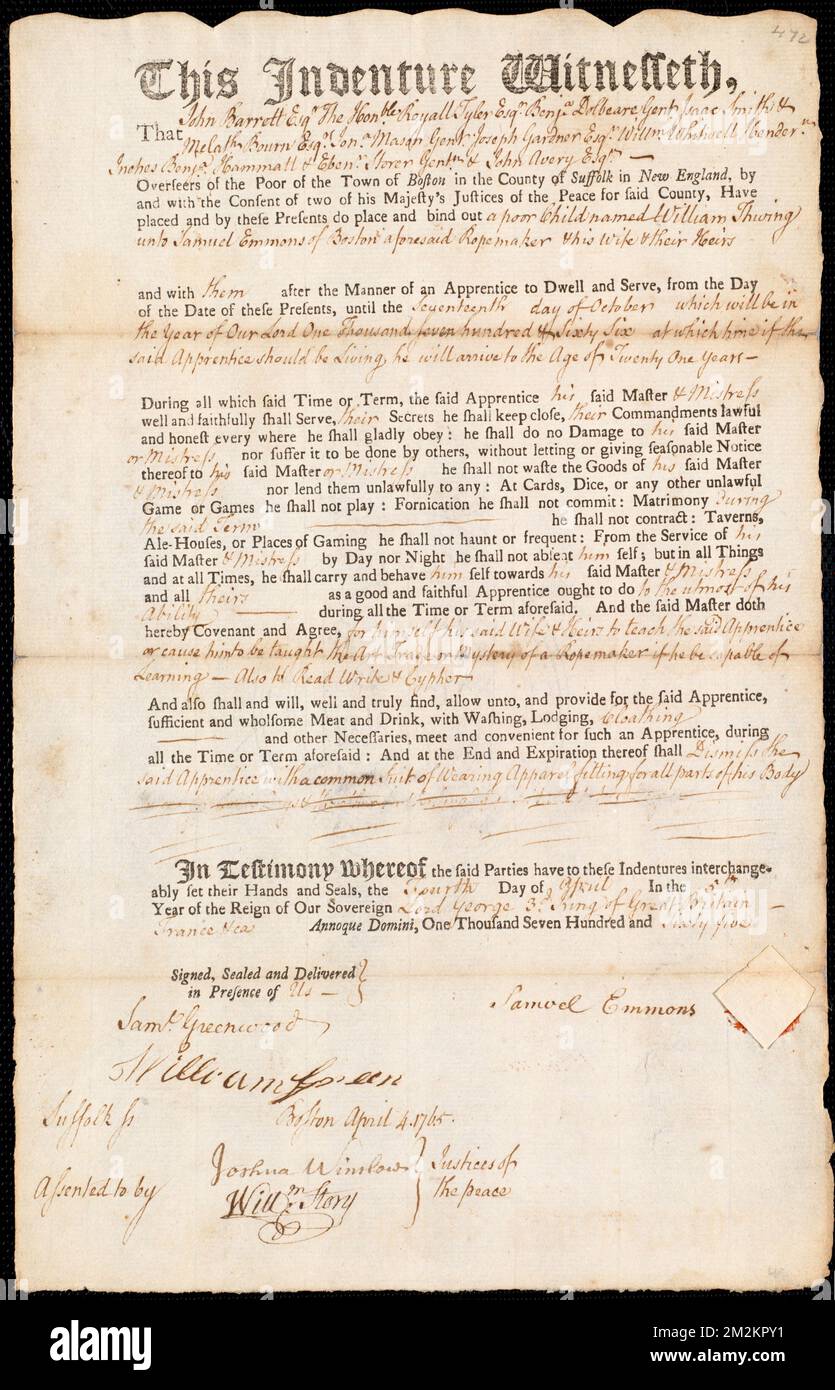 472
This Indenture Witnesseth,
John Barrett Esqr The Honble Royall Tyler Esqr Benja Dolbeare Gent Isaac Smith &
That Melath Bourn Esqr Jona Mason Gent Joseph Gardner Esqr Willm Whitwell Hender
Inches Benja Hammatt & Ebenr Storer Gentn & John Avery Esqr
Overseers of the Poor of the Town of Boston in the County of Suffolk in New England, by
and with the Consent of two of his Majesty's Justices of the Peace for said County, Have
placed and by these Presents do place and bind out a poor Child named William Thwing
unto Samuel Emmons of Boston aforesaid Ropemaker & his Wife & their Heirs
and with them after the Manner of an Apprentice to Dwell and Serve, from the Day
of the Date of these Presents, until the Seventeenth day of October which will be in
the year of Our Lord One Thousand seven hundred & Sixty Six at which time if the
said Apprentice should be Living, he will arrive to the Age of Twenty One Years—
During all which said Time or Term, the said Apprentice his said Master & Mistress
well and faithfully shall Serve, their Secrets he shall keep close, their Commandments lawful
and honest every where he shall gladly obey: he shall do no Damage to his said Master
or Mistress nor suffer it to be done by others, without letting or giving seasonable Notice
thereof to his said Master or Mistress he shall not waste the Goods of his said Master
& Mistress nor lend them unlawfully to any: At Cards, Dice, or any other unlawful
Game or Games he shall not play: Fornication he shall not commit: Matrimony during
the said Term he shall not contract: Taverns,
Ale-Houses, or Places of Gaming he shall not haunt or frequent: From the Service of his
said Master & Mistress by Day nor Night he shall not absent him self; but in all Things
and at all Times, he shall carry and behave him self towards his said Master & Mistress
and all theirs as a good and faithful Apprentice ought to do to the utmost of his
Ability during all the Time or Term aforesaid. And the said Master doth
hereby Covenant and Agree, for himself his said Wife & Heirs to teach the said Apprentice
or cause him to be taught the Art Trade or Mystery of a Ropemaker if he be capable of
Learning — Also to Read Write & Cypher
And also shall and will, well and truly find, allow unto, and provide for the said Apprentice,
sufficient and wholsome Meat and Drink, with Washing, Lodging, Cloathing
and other Necessaries, meet and convenient for such an Apprentice, during
all the Time or Term aforesaid: And at the End and Expiration thereof shall Dismiss the
said Apprentice with a common Suit of Wearing Apparel fitting for all parts of his Body
In Testimony whereof the said Parties have to these Indentures interchange-
ably set their Hands and Seals, the Fourth Day of April In the 5th
Year of the Reign of Our Sovereign Lord George 3d King of Great Britain
France &ca Annoque Domini, One Thousand Seven Hundred and Sixty five
Signed, Sealed and Delivered
in Presence of Us
Samuel Emmons
Saml Greenwood
William Green
Suffolk ss Boston April 4. 1765.
Joshua Winslow Justices of
Assented to by the peace
Willm Story
alamy
Image ID: 2M2MKPY1
www.alamy.com